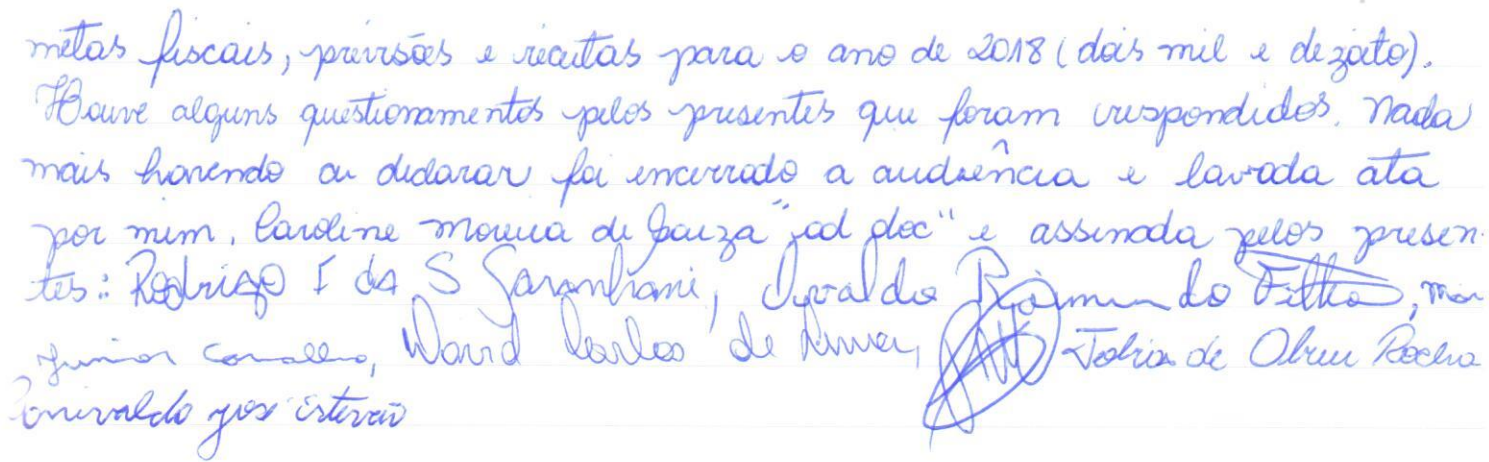 metas fiscais, previsões e receitas para o ano de 2018 (dois mil e dezoito).
Houve alguns questionamentos pelos presentes que foram respondidos. Nada
mais havendo a declarar foi encerrado a audiência e lavrada ata
por mim, Caroline Moreira de Souza "ad doc" e assinada pelos presen-
tes: Rodrigo F da S Garanhani, Osvaldo Raimundo Filho,
Junior Carvalho, David Carlos de Tobia de Abreu Rocha
José Estevão